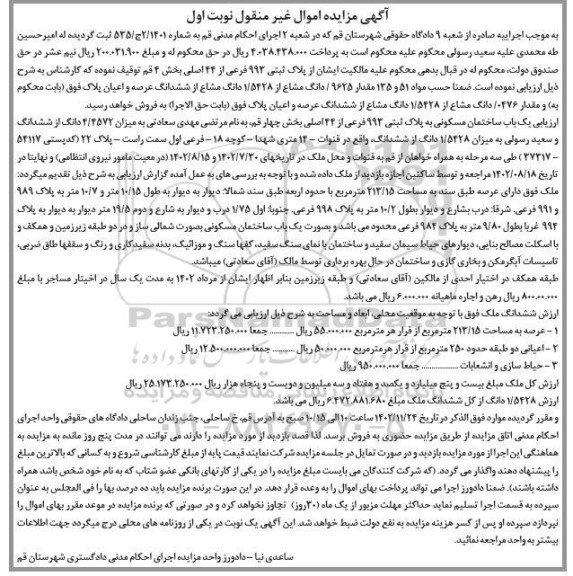 آگهی مزایده اموال غیر منقول نوبت اول
به موجب اجراییه صادره از شعبه ۹ دادگاه حقوقی شهرستان قم که در شعبه ۲ اجرای احکام مدنی قم به شماره ۲/۱۴۰۱ج/۵۳۵ ثبت گردیده له امیرحسین
طه محمدی علیه سعید رسولی محکوم علیه محکوم است به پرداخت ۴.۰۳۸.۴۳۸.۰۰۰ ریال در حق محکوم له و مبلغ ۲۰۰.۰۳۱.۹۰۰ ریال نیم عشر در حق
صندوق دولت، محکوم له در قبال بدهی محکوم علیه مالکیت ایشان از پلاک ثبتی ۹۹۳ فرعی از ۴۴ اصلی بخش ۴ قم توقیف نموده که کارشناس به شرح
ذیل ارزیابی نموده است. ضمنا حسب مواد ۵۱ و ۱۳۵ مقدار ۹۶۲۵ / دانگ مشاع از ۱/۵۴۲۸ دانگ مشاع از ششدانگ عرصه و اعیان پلاک فوق (بابت محکوم
به) و مقدار ۰۴۷۶/ دانگ مشاع از ۱/۵۴۲۸ دانگ مشاع از ششدانگ عرصه و اعیان پلاک فوق (بابت حق الاجرا) به فروش خواهد رسید.
ارزیابی یک باب ساختمان مسکونی به پلاک ثبتی ۹۹۳ فرعی از ۴۴ اصلی بخش چهار قم، به نام مرتضی مهدی سعادتی به میزان ۴/۴۵۷۲ دانگ از ششدانگ
و سعید رسولی به میزان ۱/۵۴۲۸ دانگ از ششدانگ، واقع در قنوات – ۱۴ متری شهدا – کوچه ۱۸ – فرعی اول سمت راست – پلاک ۲۲ (کدپستی ۵۴۱۱۷
– ۳۷۳۱۷) طی سه مرحله به همراه خواهان از قم به قنوات و محل ملک در تاریخهای ۱۴۰۲/۷/۳۰ و ۱۴۰۲/۸/۱۵ (در معیت مامور نیروی انتظامی) و نهایتا در
تاریخ ۱۴۰۲/۰۸/۱۸ مراجعه و توسط ساکنین اجازه بازدید از ملک داده شده و با توجه به بررسی های به عمل آمده گزارش ارزیابی به شرح ذیل تقدیم میگردد:
ملک فوق دارای عرصه طبق سند به مساحت ۲۱۳/۱۵ مترمربع با حدود اربعه طبق سند شمالا: دیوار به دیوار به طول ۱۰/۱۵ متر و ۱۰/۷ متر به پلاک ۹۸۹
و ۹۹۱ فرعی. شرقا: درب بشارع و دیوار بطول ۱۰/۲ متر به پلاک ۹۹۸ فرعی. جنوبا: اول ۱/۷۵ درب و دیوار به شارع و دوم ۱۹/۵ متر دیوار به دیوار به پلاک
۹۹۴ غربا بطول ۹/۸۰ متر به پلاک ۹۸۴ فرعی محدود می باشد و بصورت یک باب ساختمان مسکونی بصورت شمالی ساز و در دو طبقه زیرزمین و همکف و
با اسکلت مصالح بنایی، دیوارهای حیاط سیمان سفید و ساختمان با نمای سنگ سفید، کفها سنگ و موزائیک، بدنه سفیدکاری و رنگ و سقفها طاق ضربی،
تاسیسات آبگرمکن و بخاری گازی و ساختمان در حال بهره برداری توسط مالک (آقای سعادتی) میباشد.
طبقه همکف در اختیار احدی از مالکین (آقای سعادتی) و طبقه زیرزمین بنابر اظهار ایشان از مرداد ۱۴۰۲ به مدت یک سال در اختیار مستاجر با مبلغ
۸۰۰.۰۰۰.۰۰۰ ریال رهن و اجاره ماهیانه ۶.۰۰۰.۰۰۰ ریال می باشد.
ارزش ششدانگ ملک فوق با توجه به موقعیت محلی، ابعاد و مساحت به شرح ذیل ارزیابی می گردد:
۱ – عرصه به مساحت ۲۱۳/۱۵ مترمربع از قرار هر مترمربع ۵۵.۰۰۰.۰۰۰ ریال ........... جمعا ۱۱.۷۲۳.۲۵۰.۰۰۰ ریال
۲ – اعیانی دو طبقه حدود ۲۵۰ مترمربع از قرار هر مترمربع ۵۰.۰۰۰.۰۰۰ ریال ........... جمعا ۱۲.۵۰۰.۰۰۰.۰۰۰ ریال
۳ – حیاط سازی و انشعابات ................... جمعا ۹۵۰.۰۰۰.۰۰۰ ریال
ارزش کل ملک مبلغ بیست و پنج میلیارد و یکصد و هفتاد و سه میلیون و دویست و پنجاه هزار ریال ۲۵.۱۷۳.۲۵۰.۰۰۰ ریال
ارزش ۱/۵۴۲۸ دانگ از کل ششدانگ ملک مبلغ ۶.۴۷۲.۸۸۱.۶۸۰ ریال می باشد.
و مقرر گردیده موارد فوق الذکر در تاریخ ۱۴۰۲/۱۱/۲۴ ساعت ۱۰ الی ۱۰/۱۵ صبح به آدرس قم، خ ساحلی، جنب زندان ساحلی دادگاه های حقوقی واحد اجرای
احکام مدنی اتاق مزایده از طریق مزایده حضوری به فروش برسد. لذا قصد بازدید از مورد مزایده را دارند می توانند در مدت پنج روز مانده به مزایده به
هماهنگی این اجرا از مورد مزایده بازدید و در صورت تمایل در جلسه مزایده شرکت نمایند قیمت پایه از مبلغ کارشناسی شروع و به کسانی که بالاترین مبلغ
را پیشنهاد دهند واگذار می گردد. (که شرکت کنندگان می بایست مبلغ مزایده را در یکی از کارتهای بانکی عضو شتاب که به نام خود شخص باشد همراه
داشته باشند). ضمنا دادورز اجرا می تواند پرداخت بهای اموال را به وعده قرار دهد. در این صورت برنده مزایده باید ده درصد بها را فی المجلس به عنوان
سپرده به قسمت اجرا تسلیم نماید حداکثر مهلت مزبور از یک ماه (۳۰روز) تجاوز نخواهد کرد و در صورتی که برنده مزایده در موعد مقرر بهای اموال را
نپردازد سپرده او پس از کسر هزینه مزایده به نفع دولت ضبط خواهد شد. این آگهی یک نوبت در یکی از روزنامه های محلی درج میگردد جهت اطلاعات
بیشتر به واحد مراجعه نمائید.
ساعدی نیا – دادورز واحد مزایده اجرای احکام مدنی دادگستری شهرستان قم